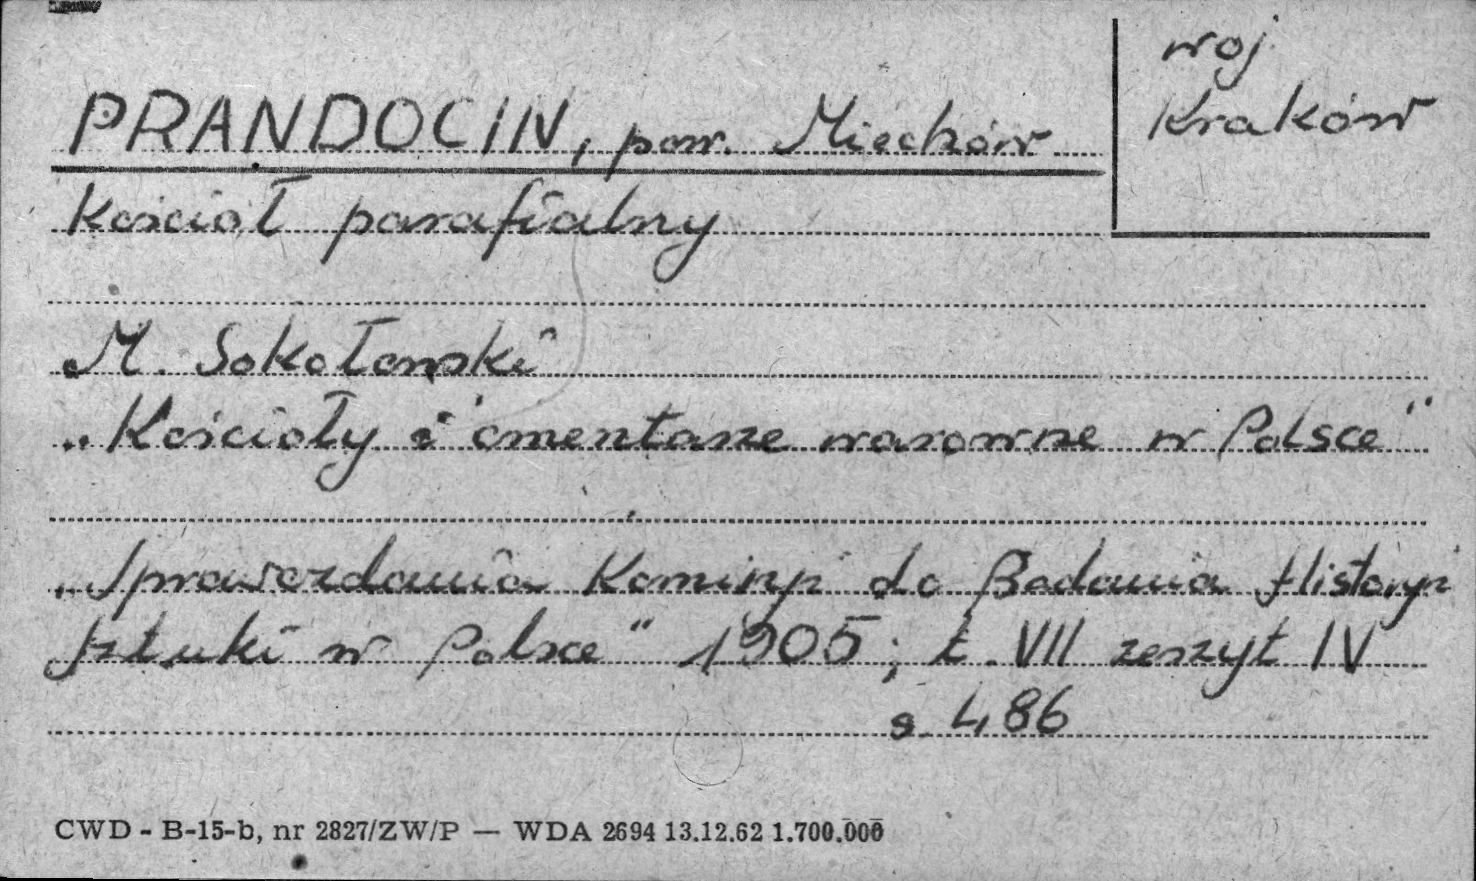 woj.
Kraków
PRANDOCIN, pow. Miechów
Kościoł parafialny
M. Sokołowski
„Kościoły i cmentarze warowne w Polsce"
„Sprawozdania Komisyi do Badania Historyi
Sztuki w Polsce" 1905; t. VII zeszyt IV
s. 486
CWD - B-15-b, nr 2827/ZW/P — WDA 2694 13.12.62 1.700.000